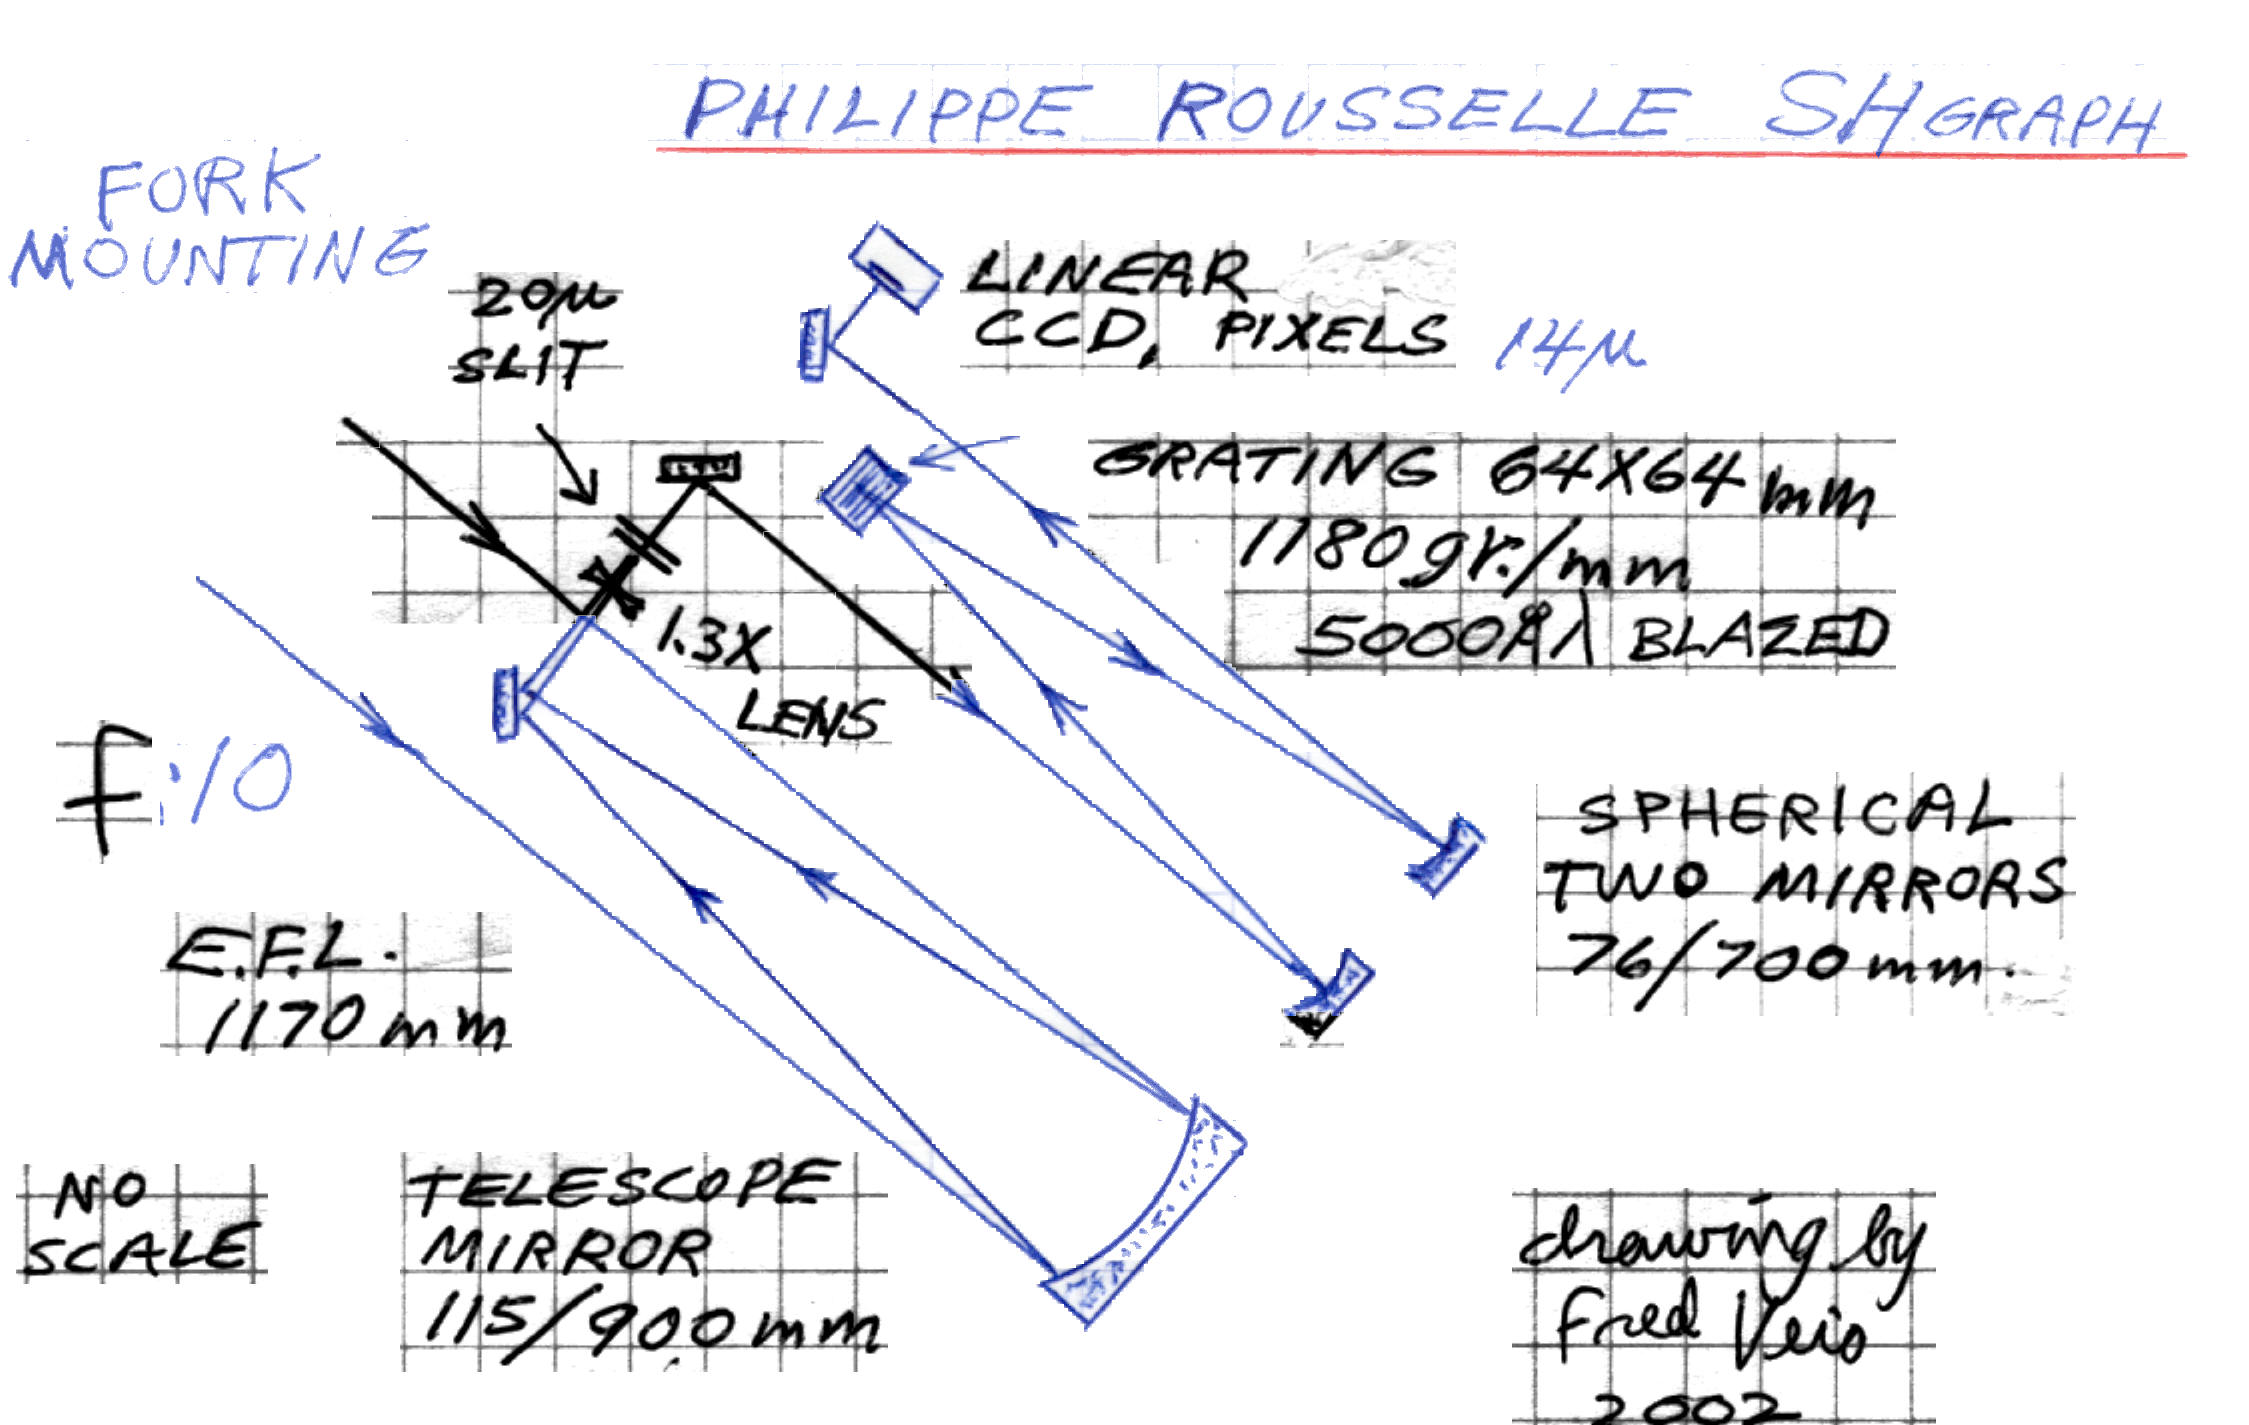 PHILIPPE ROUSSELLE SHGRAPH
FORK
MOUNTING
20µ
SLIT
LINEAR
CCD, PIXELS 14µ
GRATING 64X64 mm
1180 gr./mm
5000Åλ BLAZED
1.3X
LENS
f:10
SPHERICAL
TWO MIRRORS
76/700 mm.
E.F.L.
1170 mm
NO
SCALE
TELESCOPE
MIRROR
115/900 mm
drawing by
Fred Veio
2002